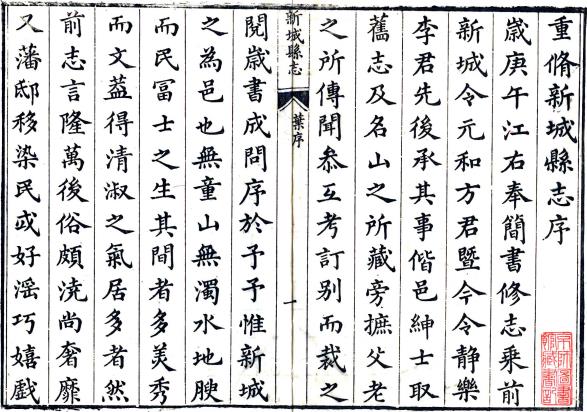 重脩新城縣志序
嵗庚午江右奉簡書修志乗前
新城令元和方君暨今令静樂
李君先後承其事偕邑紳士取
舊志及名山之所藏旁摭父老
之所傳聞叅互考訂别而裁之
新城縣志
葉序
一
閱歳書成問序於予予惟新城
之為邑也無童山無濁水地腴
而民冨士之生其間者多美秀
而文葢得清淑之氣居多者然
前志言隆萬後俗頗澆尚奢靡
又藩邸移染民或好滛巧嬉戲